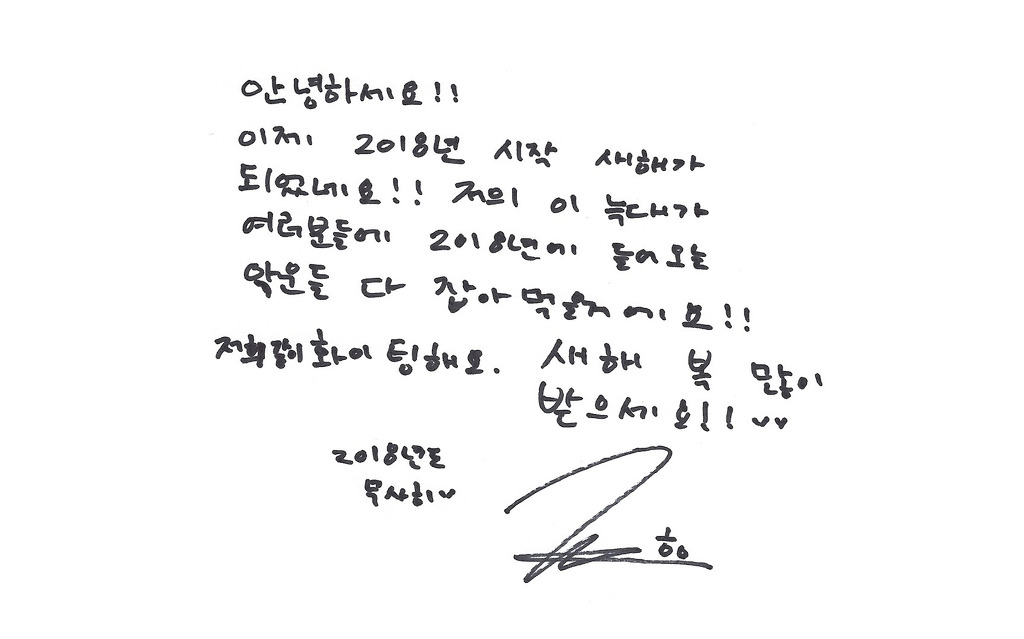 안녕하세요!!
이제 2018년 시작 새해가
되었네요!! 저의 이 늑대가
여러분들에 2018년에 들어오는
악운들 다 잡아 먹을거에요!!
저희 같이 화이팅해요. 새해 복 많이
받으세요!! ♥♥
2018년도
무사히♥
흥